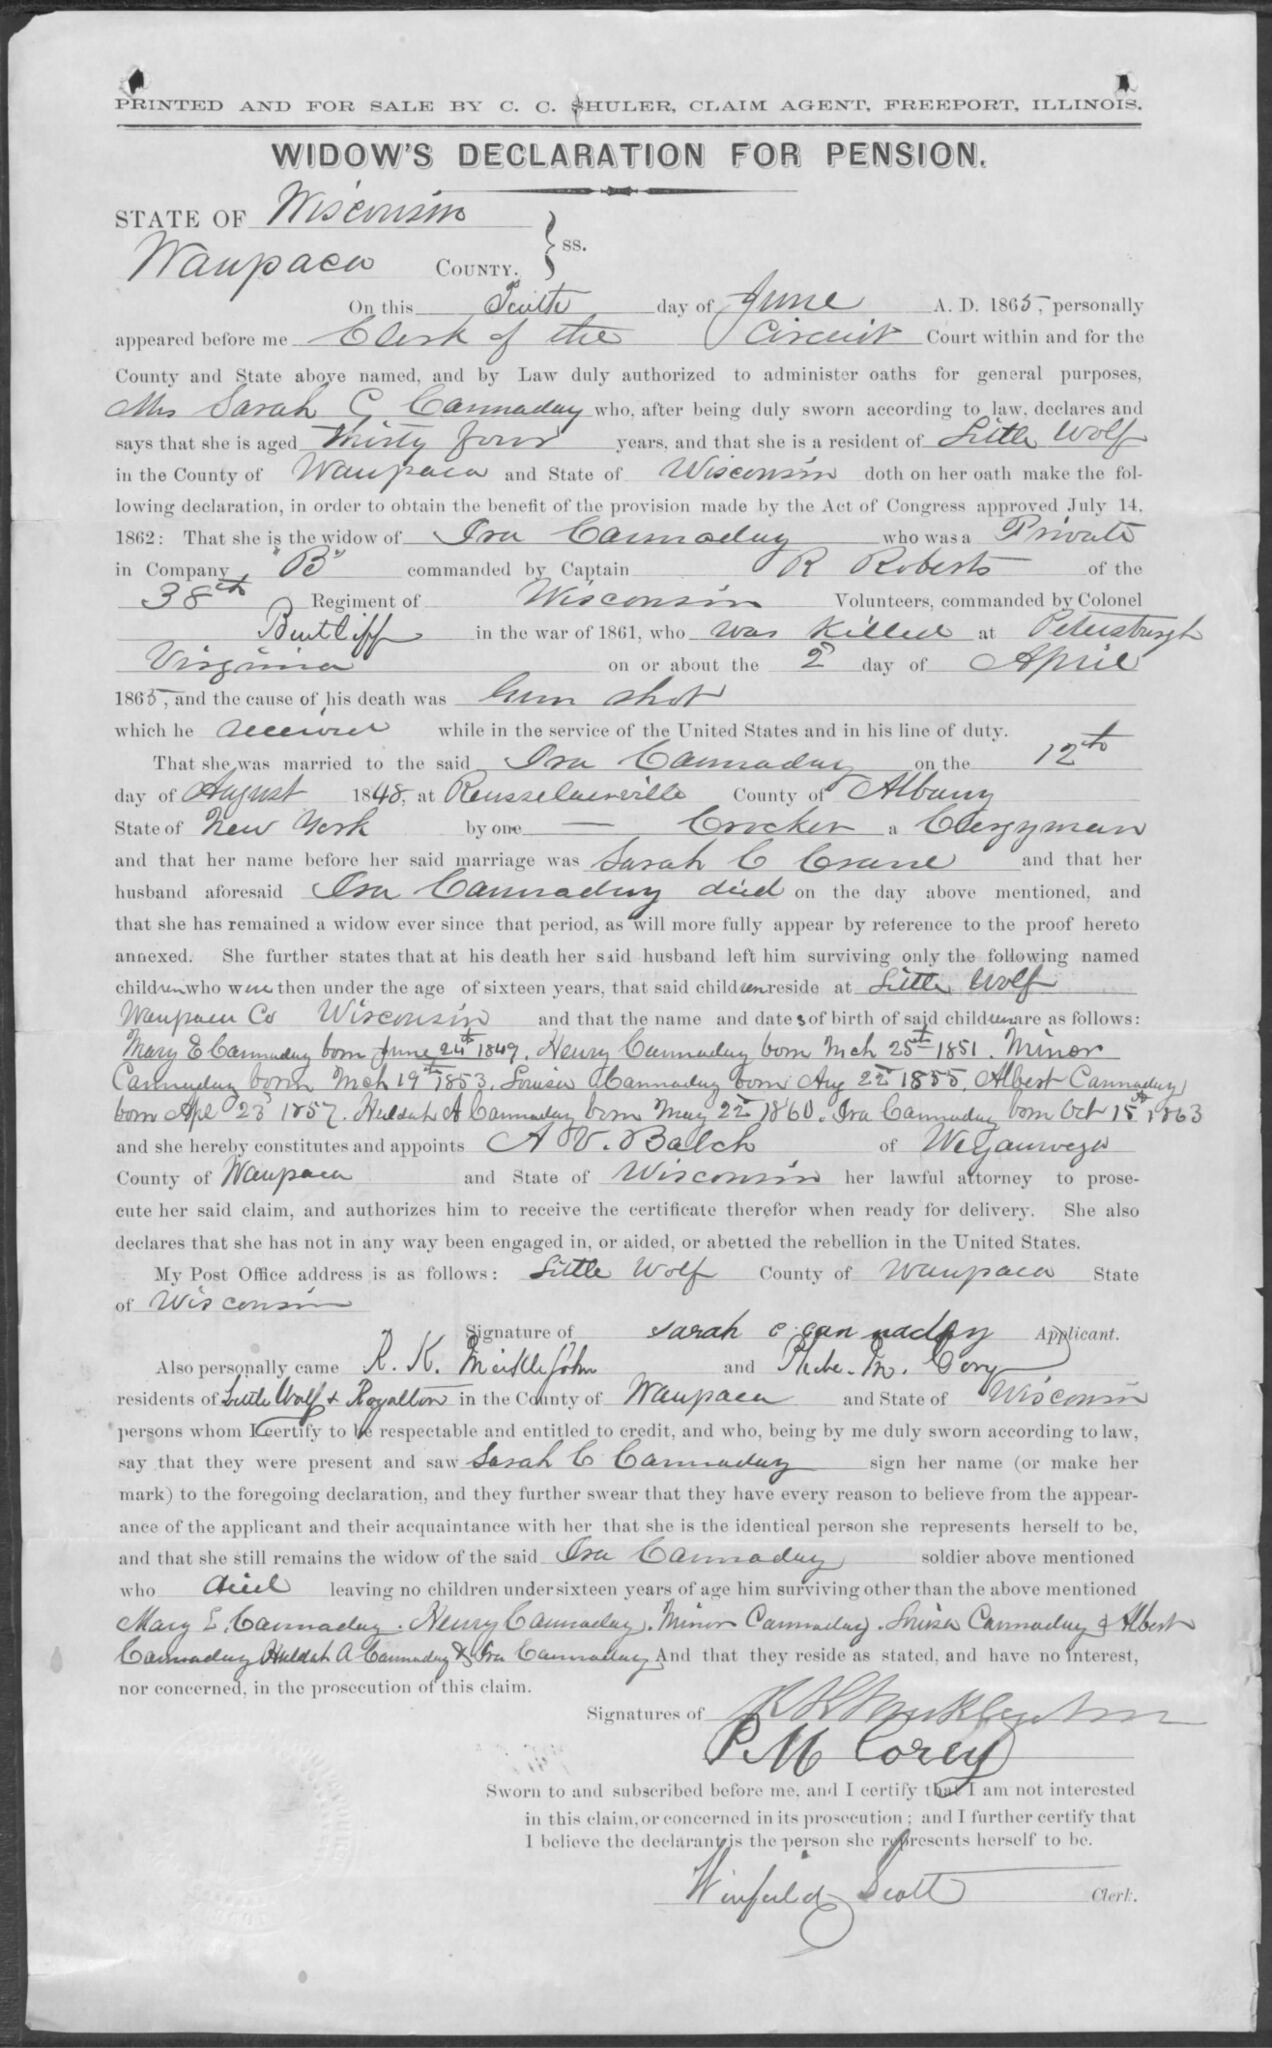 PRINTED AND FOR SALE BY C. C. SHULER, CLAIM AGENT, FREEPORT, ILLINOIS.
WIDOW'S DECLARATION FOR PENSION.
STATE OF Wisconsin
Waupaca COUNTY. } ss.
On this day of June A. D. 1865, personally
appeared before me Clerk of the Circuit Court within and for the
County and State above named, and by Law duly authorized to administer oaths for general purposes,
Mrs Sarah C Cannaday who, after being duly sworn according to law, declares and
says that she is aged Thirty four years, and that she is a resident of Little Wolf
in the County of Waupaca and State of Wisconsin doth on her oath make the fol-
lowing declaration, in order to obtain the benefit of the provision made by the Act of Congress approved July 14,
1862: That she is the widow of Ira Cannaday who was a Private
in Company "B" commanded by Captain R Roberts of the
38th Regiment of Wisconsin Volunteers, commanded by Colonel
Bintliff in the war of 1861, who was killed at Petersburgh
Virginia on or about the 2d day of April
1865, and the cause of his death was Gun shot
which he received while in the service of the United States and in his line of duty.
That she was married to the said Ira Cannaday on the 12th
day of August 1848, at Rensselaerville County of Albany
State of New York by one — Crocker a Clergyman
and that her name before her said marriage was Sarah C Crane and that her
husband aforesaid Ira Cannaday died on the day above mentioned, and
that she has remained a widow ever since that period, as will more fully appear by reference to the proof hereto
annexed. She further states that at his death her said husband left him surviving only the following named
children who were then under the age of sixteen years, that said children reside at Little Wolf
Waupaca Co Wisconsin and that the name and dates of birth of said children are as follows:
Mary E Cannaday born June 24th 1849, Henry Cannaday born Mch 25th 1851. Minor
Cannaday born Mch 19th 1853, Louisa Cannaday born Aug 22d 1855, Albert Cannaday
born Apl 23d 1857. Huldah A Cannaday born May 22d 1860. Ira Cannaday born Oct 15th 1863
and she hereby constitutes and appoints A V. Balch of Weyauwega
County of Waupaca and State of Wisconsin her lawful attorney to prose-
cute her said claim, and authorizes him to receive the certificate therefor when ready for delivery. She also
declares that she has not in any way been engaged in, or aided, or abetted the rebellion in the United States.
My Post Office address is as follows: Little Wolf County of Waupaca State
of Wisconsin
Signature of sarah c cannaday Applicant.
Also personally came R. K. Meiklejohn and Phebe. M. Cory
residents of Little Wolf & Royalton in the County of Waupaca and State of Wisconsin
persons whom I certify to be respectable and entitled to credit, and who, being by me duly sworn according to law,
say that they were present and saw Sarah C Cannaday sign her name (or make her
mark) to the foregoing declaration, and they further swear that they have every reason to believe from the appear-
ance of the applicant and their acquaintance with her that she is the identical person she represents herself to be,
and that she still remains the widow of the said Ira Cannaday soldier above mentioned
who died leaving no children under sixteen years of age him surviving other than the above mentioned
Mary E, Cannaday. Henry Cannaday. Minor Cannaday. Louisa Cannaday & Albert
Cannaday Huldah A Cannaday & Ira Cannaday And that they reside as stated, and have no interest,
nor concerned, in the prosecution of this claim.
Signatures of R K Meiklejohn
P. M Corey
Sworn to and subscribed before me, and I certify that I am not interested
in this claim, or concerned in its prosecution; and I further certify that
I believe the declarant is the person she represents herself to be.
Winfield Scott Clerk.